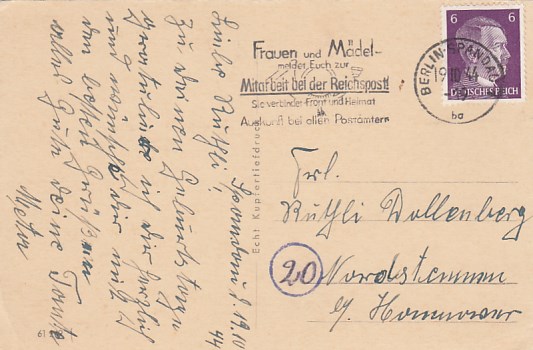 Spandau d. 19.10.44
Liebe Ruthli!
Zu deinem Geburtstage
gratuliere ich dir herzlich
und wünsche dir mit
den besten Grüßen
alles Gute deine Tante
Meta
61
Echt Kupfertiefdruck
Frauen und Mädel-
meldet Euch zur
Mitarbeit bei der Reichspost!
Sie verbindet Front und Heimat
Auskunft bei allen Postämtern
BERLIN-SPANDAU
19.10.44
ba
6 6
DEUTSCHES REICH
Frl.
Ruthli Dollenberg
20
Nordstemmen
b/ Hannover